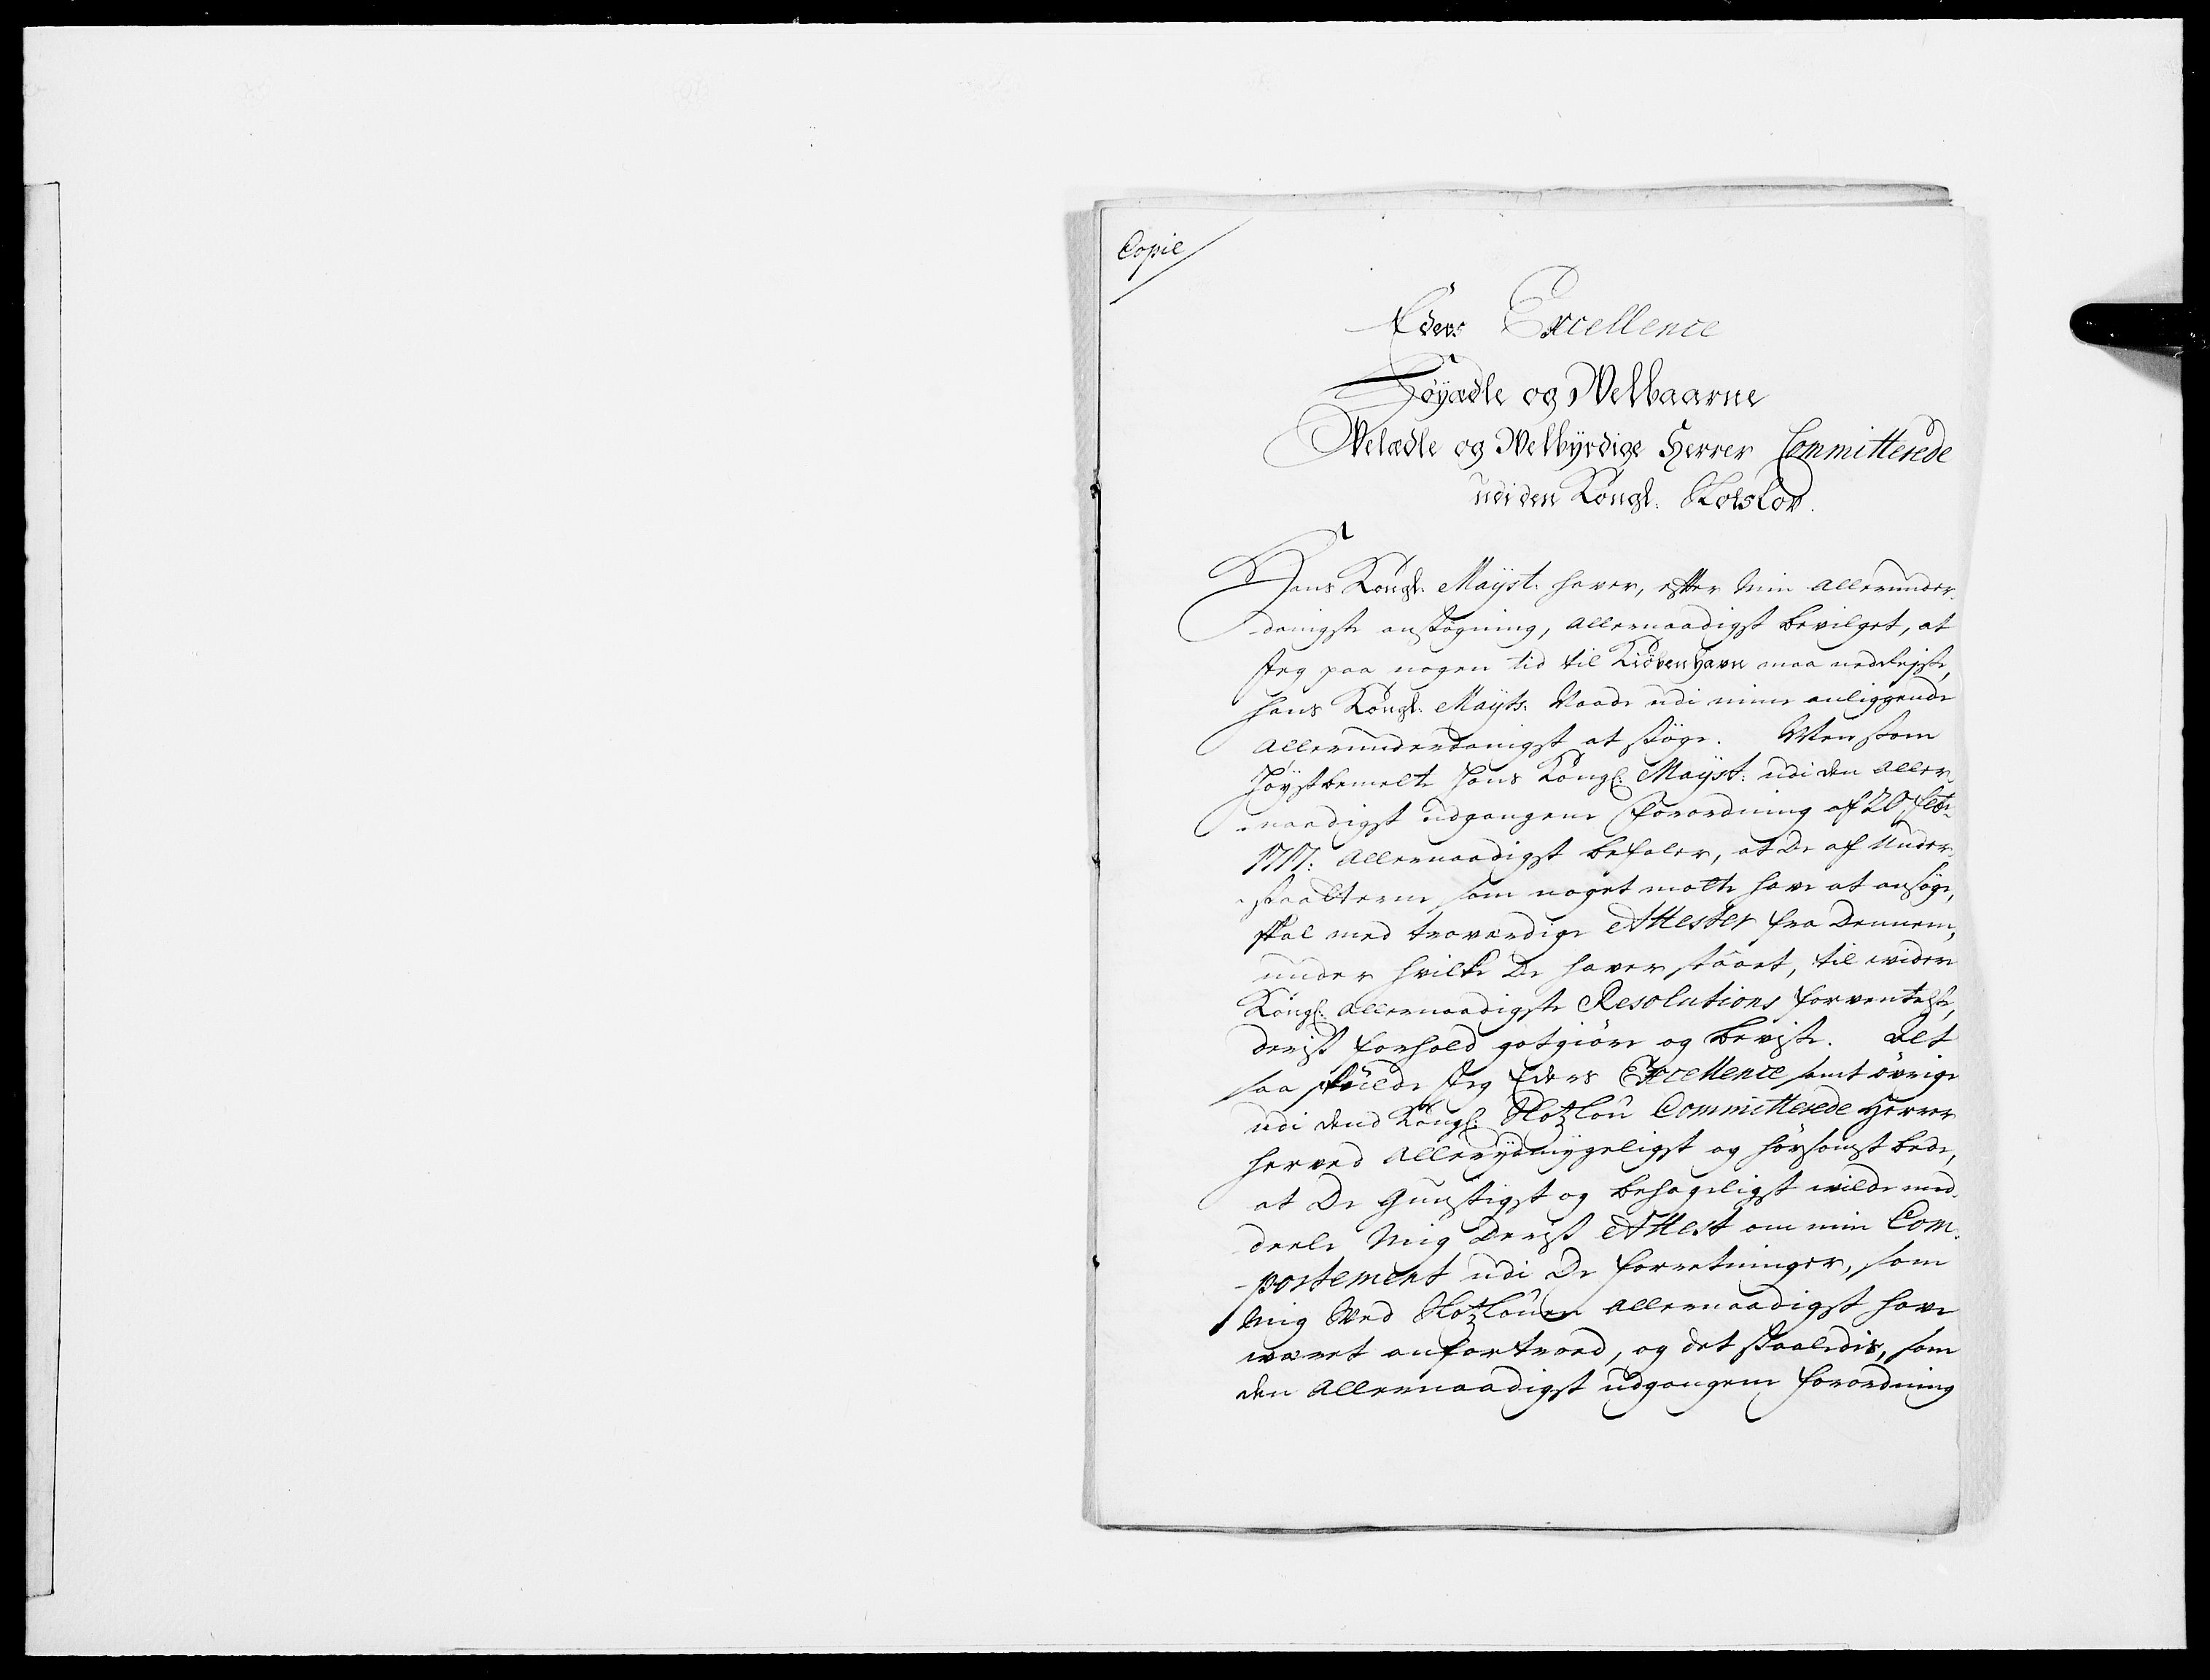 Copie
Eders Excellence
Høyædle og Welbaarne
Welædle og Welbÿrdige Herrer Committerede
udi den Kongl. Slotslov.
Hans Kongl. Maÿst. haver, efter Min allerunder-
danigste ansøgning, allernaadigst bevilget, at
Jeg paa nogen tid til Kiøbenhavn maa nedrejse,
hans Kongl. Mayts. Naade udi mine anliggende
allerunderdanigst at søge. Men som
Høystbemelte Hans Kongl: Maÿst: udi den aller-
naadigst udgangene forordning af 20 Febr.
1717: allernaadigst befaler, at De af Under-
saatterne som noget motte have at ansøge,
skal med troværdige Attester fra Dennem,
under hvilke De haver staaet, til widere
Kongl: allernaadigste Resolutions forventelse,
deris forhold gotgiøre og beviise. Alt
saa skulde Jeg Eders Excellence samt övrige
udi dend Kongl: Slotzlou Committerede Herrer
herved allerydmygeligst og høysomst bede,
at De Gunstigst og behageligst wilde med-
deele Mig Deris Attest om min Com-
portement udi De forretninger, som
Mig Wed Slotzlouen allernaadigst have
wæret anfortroed, og det saaledis, som
den allernaadigst udgangene forordning